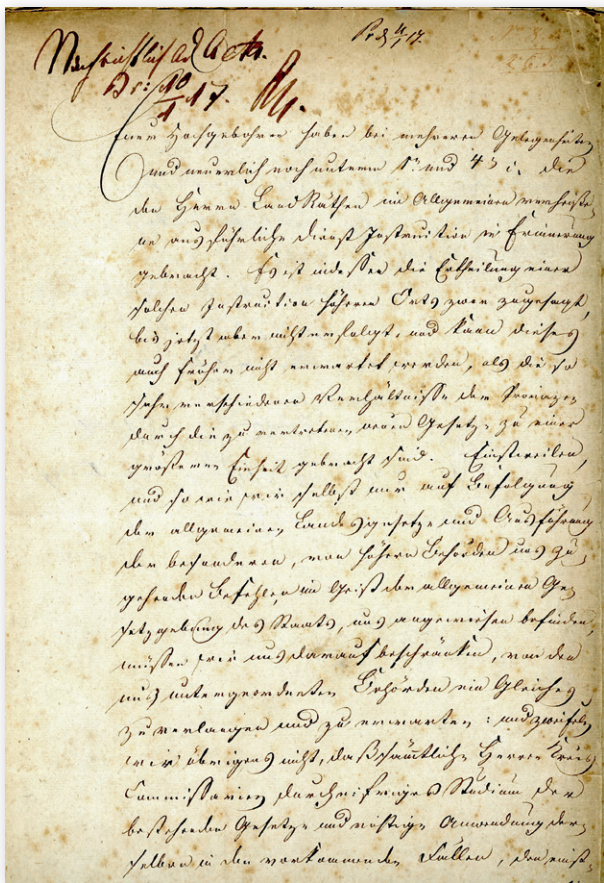 Nachrichtlich ad Acta.
Pr. d. 11/1 17.
Br: 10/1 17.
Euer Hochgebohren haben bei mehreren Gelegenheiten
und neuerlich noch unterm 1n und 4n die
den Herrn LandRäthen im Allgemeinen verheiße-
ne ausführliche Dienst Instruction in Erinnerung
gebracht. Es ist indessen die Ertheilung einer
solchen Instruction höheren Orts zwar zugesagt,
bis jetzt aber nicht erfolgt, und kann dieses
auch früher nicht erwartet werden, als die so
sehr verschiedenen Verhältnisse der Provinzen
durch die zu neuen Gesetze zu einer
größeren Einheit gebracht sind. Einstweilen,
und so wie wir selbst nur auf Befolgung
der allgemeinen Landesgesetze und Ausführung
der besonderen, von höhern Behörden uns zu-
gehenden Befehlen im Geist der allgemeinen Ge-
setzgebung des Staats, uns angewiesen befinden,
müssen wir uns darauf beschränken, von den
uns untergeordneten Behörden ein Gleiches
zu verlangen und zu erwarten: und zweifeln
wir übrigens nicht, daß sämtliche Herren Kreis
Commissarien durch eifriges Studium der
bestehenden Gesetze und richtige Anwendung der-
selben in den vorkommenden Fällen, den einst-